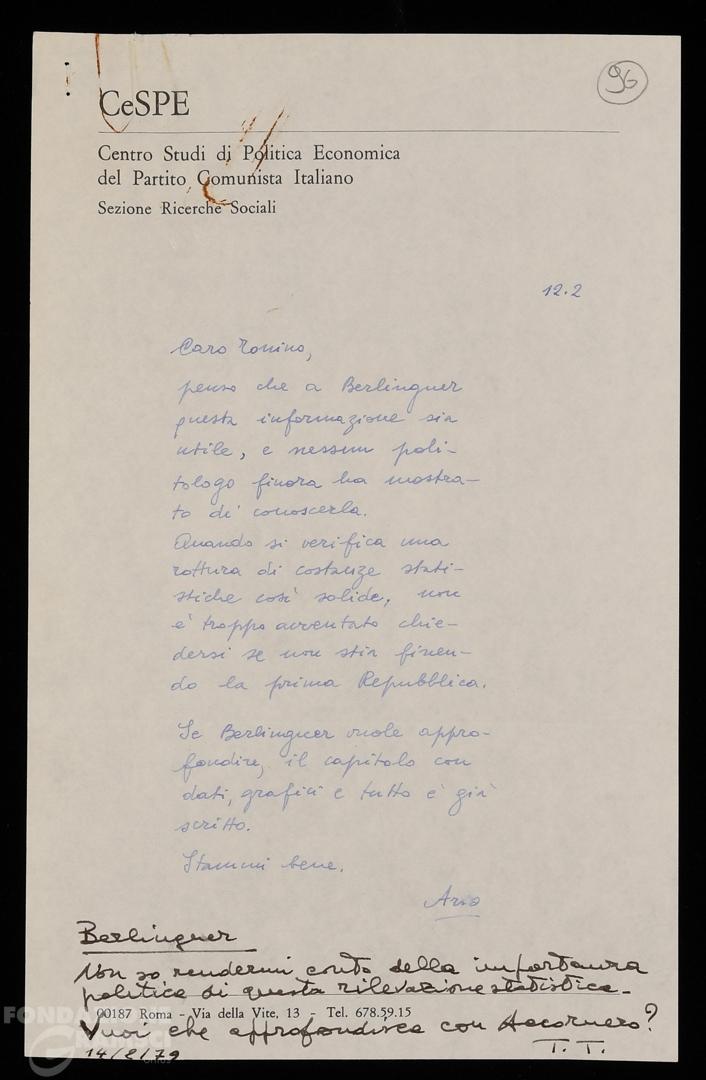 96
CeSPE
Centro Studi di Politica Economica
del Partito Comunista Italiano
Sezione Ricerche Sociali
12.2
Caro Tonino,
penso che a Berlinguer
questa informazione sia
utile, e nessun poli-
tologo finora ha mostra-
to di conoscerla.
Quando si verifica una
rottura di costanze stati-
stiche così solide, non
è troppo avventato chie-
dersi se non stia finen-
do la prima Repubblica.
Se Berlinguer vuole appro-
fondire, il capitolo con
dati, grafici e tutto è già
scritto.
Stammi bene.
Aris
Berlinguer
Non so rendermi conto della importanza
politica di questa rilevazione statistica-
00187 Roma - Via della Vite, 13 - Tel. 678.59.15
Vuoi che approfondisca con Accornero?
14/2/79
T. T.
FONDAZIONE
GRAMSCI